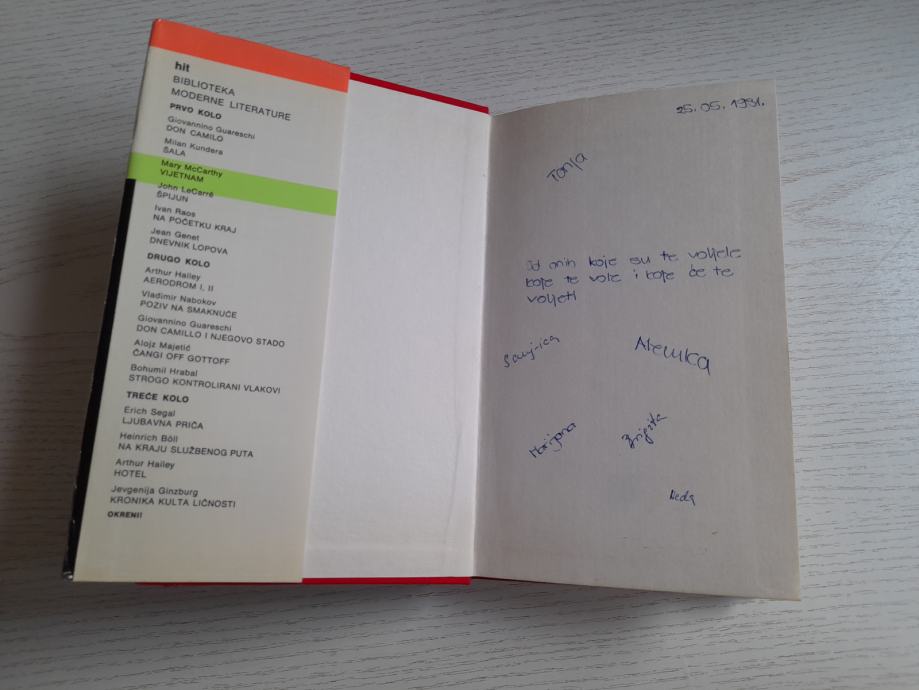 hit
BIBLIOTEKA
MODERNE LITERATURE
PRVO KOLO
Giovannino Guareschi
DON CAMILO
Milan Kundera
ŠALA
Mary McCarthy
VIJETNAM
John LeCarré
ŠPIJUN
Ivan Raos
NA POČETKU KRAJ
Jean Genet
DNEVNIK LOPOVA
DRUGO KOLO
Arthur Hailey
AERODROM I, II
Vladimir Nabokov
POZIV NA SMAKNUĆE
Giovannino Guareschi
DON CAMILLO I NJEGOVO STADO
Alojz Majetić
ČANGI OFF GOTTOFF
Bohumil Hrabal
STROGO KONTROLIRANI VLAKOVI
TREĆE KOLO
Erich Segal
LJUBAVNA PRIČA
Heinrich Böll
NA KRAJU SLUŽBENOG PUTA
Arthur Hailey
HOTEL
Jevgenija Ginzburg
KRONIKA KULTA LIČNOSTI
OKRENI!
25.05.1981.
Tanja
Od onih koje su te voljele
koje te vole i koje će te
voljeti
Alemka
Marijana
Brigita
Neda